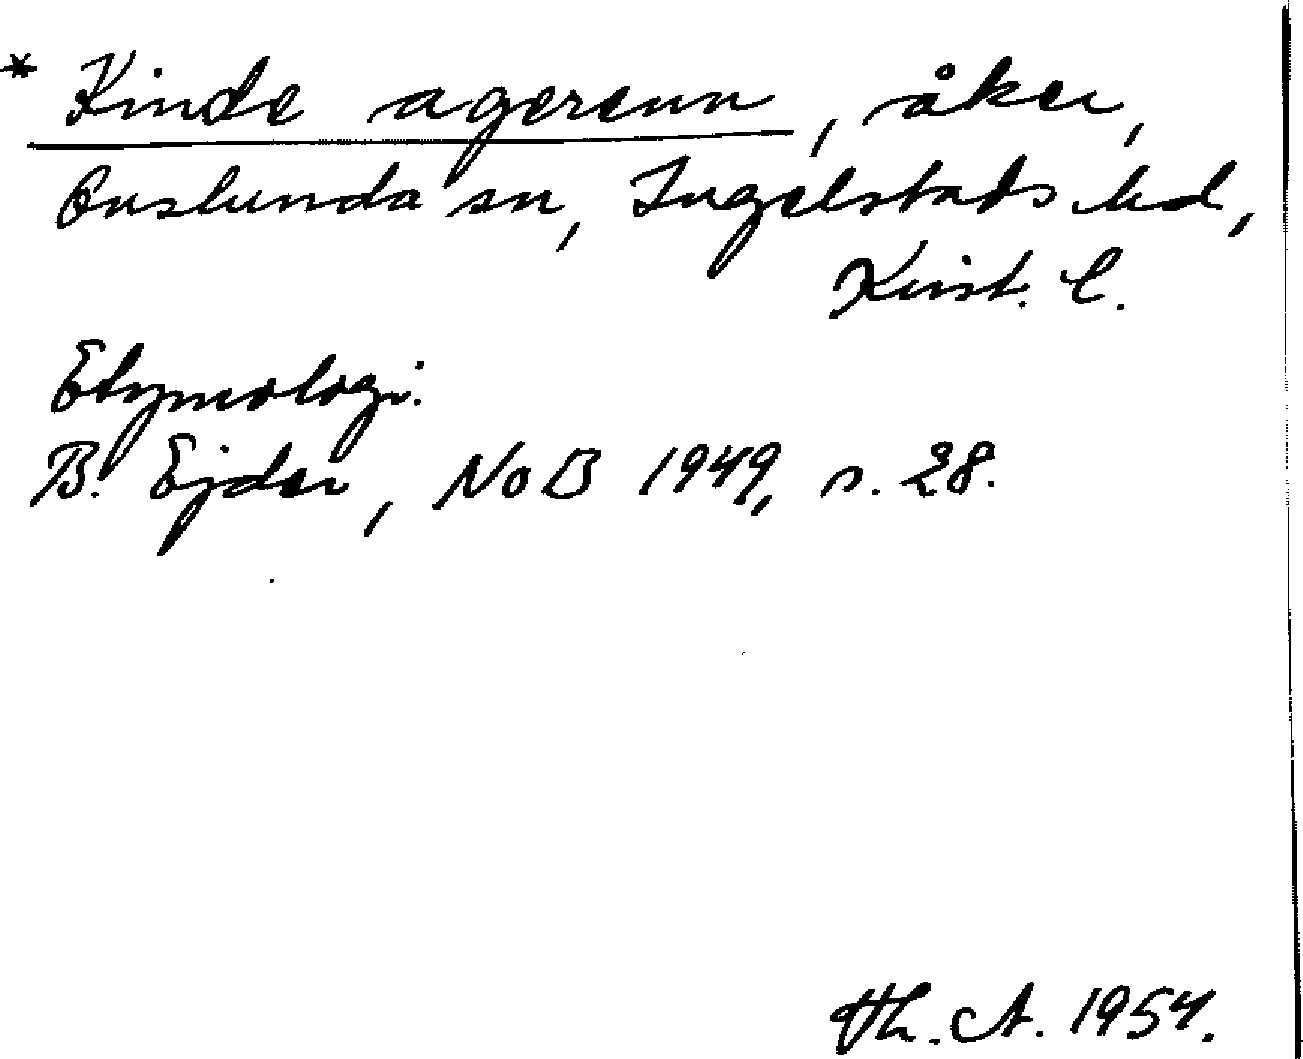 * Kinde agerenn, åker,
Onslunda sn, Ingelstads hd,
Krist. l.
Etymologi:
B. Ejder, NoB 1949, s. 28.
Th. A. 1954.